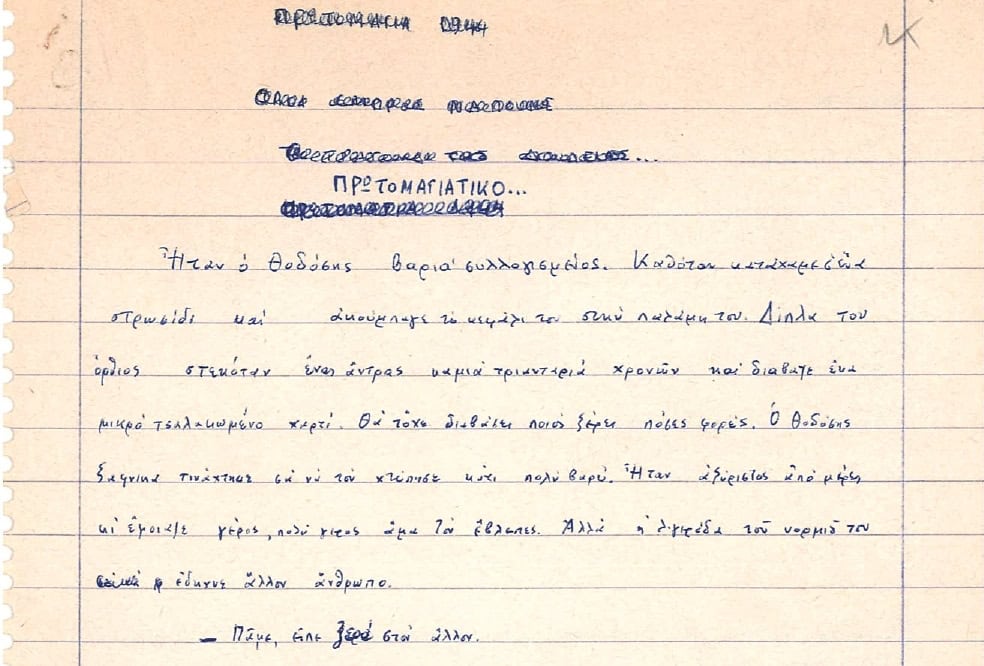 ΠΡΩΤΟΜΑΓΙΑ 1944
ΠΡΩΤΟΜΑΓΙΑΤΙΚΟ...
ΠΡΩΤΟΜΑΓΙΑ 1944
Ἦταν ὁ Θοδόσης βαριά συλλογισμένος. Καθόταν κατάχαμα σ' ἕνα
στρωσίδι καί ἀκούμπαγε τό κεφάλι του στήν παλάμη του. Δίπλα του
ὄρθιος στεκόταν ἕνας ἄντρας καμιά τριανταριά χρονῶν καί διάβαζε ἕνα
μικρό τσαλακωμένο χαρτί. Θά τὄχε διαβάσει ποιός ξέρει πόσες φορές. Ὁ Θοδόσης
ξαφνικά τινάχτηκε σά νά τόν χτύπησε κάτι πολύ βαρύ. Ἦταν ἀξύριστος ἀπό μέρες
κι ἔμοιαζε γέρος, πολύ γέρος ἅμα τόν ἔβλεπες. Ἀλλά ἡ λιγεράδα τοῦ κορμιοῦ του
ἔδειχνε ἄλλον ἄνθρωπο.
— Πᾶμε, εἶπε ξερά στόν ἄλλον.